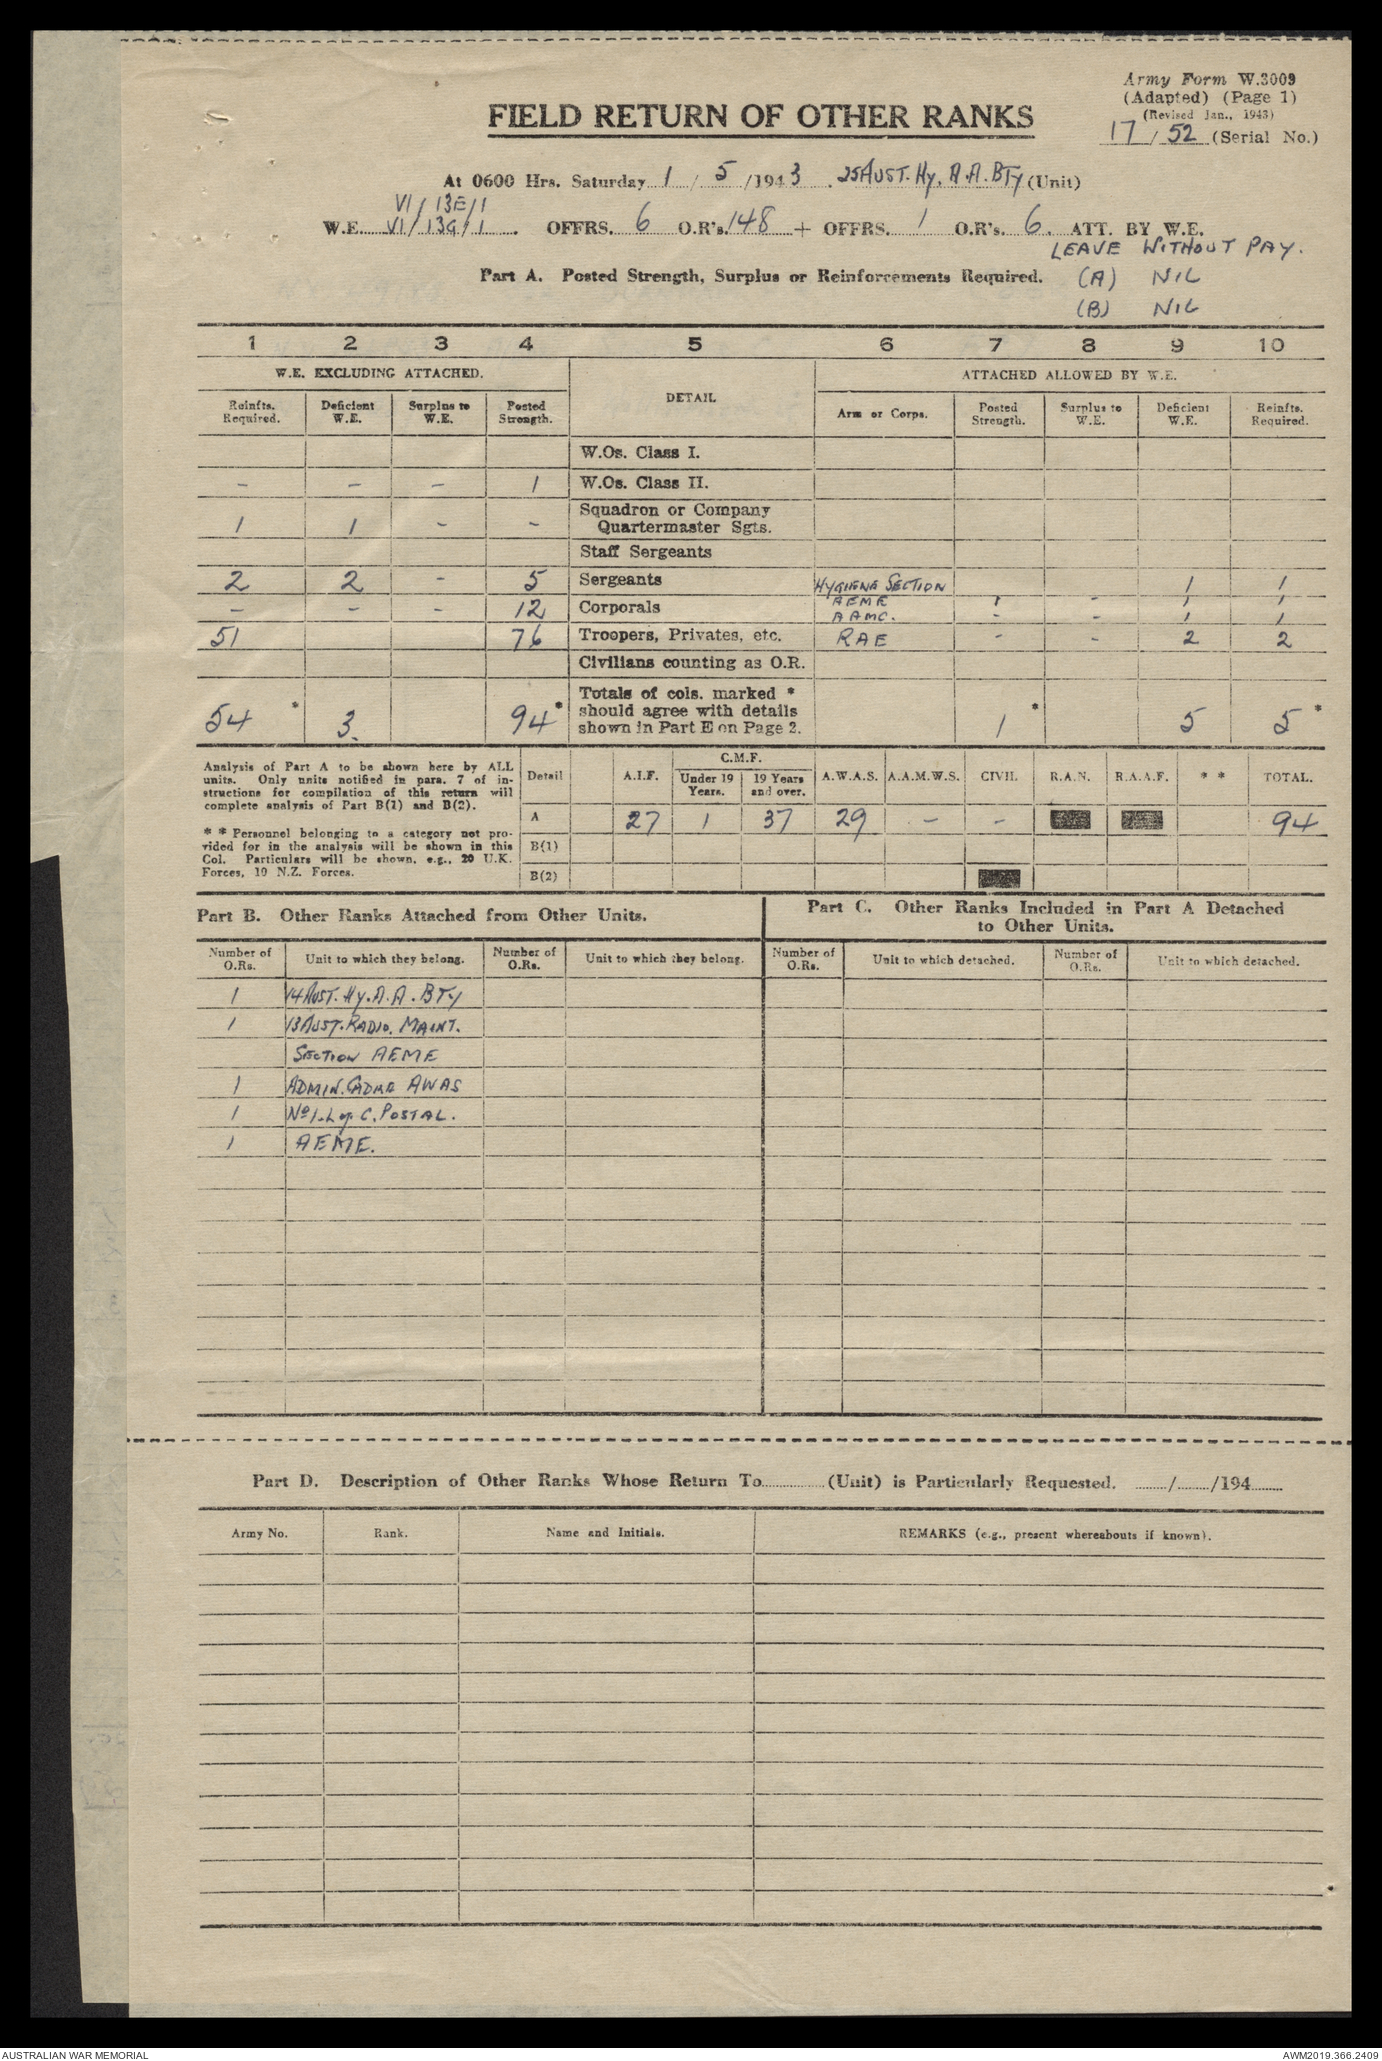 Army Form W.3009
(Adapted) (Page 1)
(Revised Jan., 1943)
17 / 52 (Serial No.)
FIELD RETURN OF OTHER RANKS
At 0600 Hrs. Saturday 1 / 5 /1943. 25 AUST. Hy. A.A. BTY (Unit)
VI / 13E / 1
W.E. VI / 13G / 1. OFFRS. 6 O.R's. 148 + OFFRS. 1 O.R's. 6. ATT. BY W.E.
LEAVE WITHOUT PAY.
Part A. Posted Strength, Surplus or Reinforcements Required. (A) NIL
(B) NIL
1 2 3 4 5 6 7 8 9 10
W.E. EXCLUDING ATTACHED. DETAIL ATTACHED ALLOWED BY W.E.
Reinfts. Required. Deficient W.E. Surplus to W.E. Posted Strength. Arm or Corps. Posted Strength. Surplus to W.E. Deficient W.E. Reinfts. Required.
W.Os. Class I.
- - - 1 W.Os. Class II.
1 1 - - Squadron or Company Quartermaster Sgts.
Staff Sergeants
2 2 - 5 Sergeants HYGIENE SECTION 1 1
- - - 12 Corporals AEME 1 - 1 1
AAMC. - - 1 1
51 76 Troopers, Privates, etc. RAE - - 2 2
Civilians counting as O.R.
54 * 3. 94 * Totals of cols. marked * should agree with details shown in Part E on Page 2. 1 * 5 5 *
Analysis of Part A to be shown here by ALL
units. Only units notified in para. 7 of in-
structions for compilation of this return will
complete analysis of Part B(1) and B(2).
* * Personnel belonging to a category not pro-
vided for in the analysis will be shown in this
Col. Particulars will be shown, e.g., 20 U.K.
Forces, 19 N.Z. Forces.
Detail A.I.F. C.M.F. Under 19 Years. 19 Years and over. A.W.A.S. A.A.M.W.S. CIVIL R.A.N. R.A.A.F. * * TOTAL.
A 27 1 37 29 - - 94
B(1)
B(2)
Part B. Other Ranks Attached from Other Units.
Part C. Other Ranks Included in Part A Detached
to Other Units.
Number of O.Rs. Unit to which they belong. Number of O.Rs. Unit to which they belong. Number of O.Rs. Unit to which detached. Number of O.Rs. Unit to which detached.
1 14 AUST. Hy. A.A. BTY
1 13 AUST. RADIO. MAINT.
SECTION AEME
1 ADMIN. CADRE AWAS
1 No 1. L of C. POSTAL.
1 AEME.
Part D. Description of Other Ranks Whose Return To.......... (Unit) is Particularly Requested. ......../......../194........
Army No. Rank. Name and Initials. REMARKS (e.g., present whereabouts if known).
AUSTRALIAN WAR MEMORIAL
AWM2019.366.2409